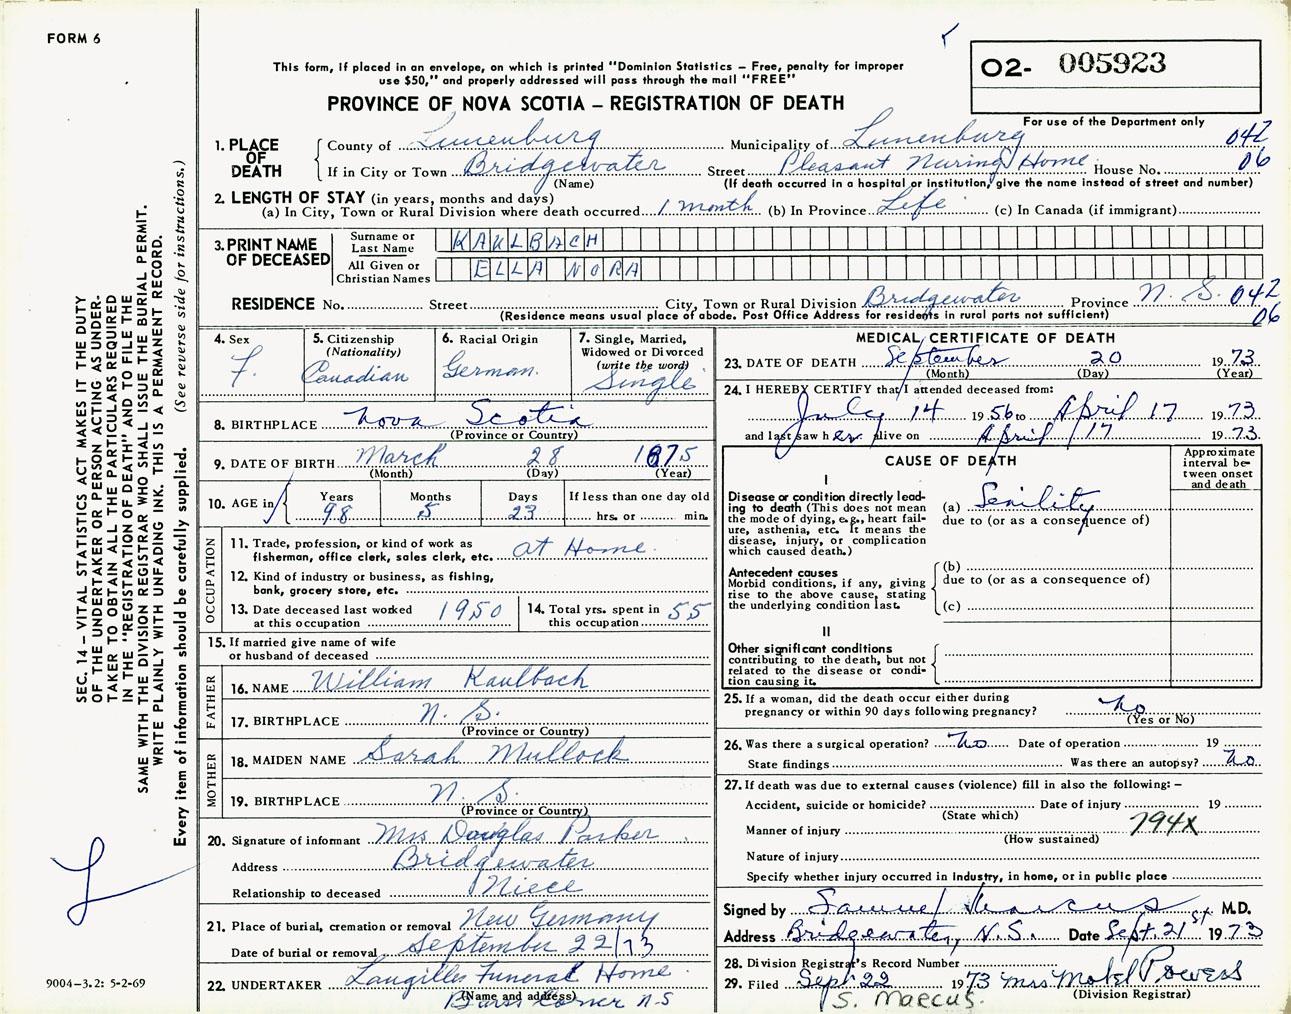 FORM 6
This form, if placed in an envelope, on which is printed "Dominion Statistics – Free, penalty for improper
use $50," and properly addressed will pass through the mail "FREE"
PROVINCE OF NOVA SCOTIA – REGISTRATION OF DEATH
O2- 005923
For use of the Department only
1. PLACE OF DEATH County of Lunenburg Municipality of Lunenburg 042
If in City or Town Bridgewater Street Pleasant Nursing Home House No. 06
(Name) (If death occurred in a hospital or institution, give the name instead of street and number)
2. LENGTH OF STAY (in years, months and days)
(a) In City, Town or Rural Division where death occurred 1 month (b) In Province Life (c) In Canada (if immigrant)
3. PRINT NAME OF DECEASED Surname or Last Name KAULBACH
All Given or Christian Names ELLA NORA
RESIDENCE No. Street City, Town or Rural Division Bridgewater Province N. S. 042
(Residence means usual place of abode. Post Office Address for residents in rural parts not sufficient) 06
4. Sex F.
5. Citizenship (Nationality) Canadian
6. Racial Origin German.
7. Single, Married, Widowed or Divorced (write the word) Single
8. BIRTHPLACE Nova Scotia
(Province or Country)
9. DATE OF BIRTH March 28 1875
(Month) (Day) (Year)
10. AGE in Years 98 Months 5 Days 23 If less than one day old
hrs. or min.
OCCUPATION
11. Trade, profession, or kind of work as
fisherman, office clerk, sales clerk, etc. at Home.
12. Kind of industry or business, as fishing,
bank, grocery store, etc.
13. Date deceased last worked at this occupation 1950
14. Total yrs. spent in this occupation 55
15. If married give name of wife
or husband of deceased
FATHER
16. NAME William Kaulbach
17. BIRTHPLACE N. S.
(Province or Country)
MOTHER
18. MAIDEN NAME Sarah Mullock
19. BIRTHPLACE N. S.
(Province or Country)
20. Signature of informant Mrs Douglas Parker
Address Bridgewater
Relationship to deceased Niece
21. Place of burial, cremation or removal New Germany
Date of burial or removal September 22/73
22. UNDERTAKER Funeral Home
(Name and address) Corner N.S
MEDICAL CERTIFICATE OF DEATH
23. DATE OF DEATH September 20 1973
(Month) (Day) (Year)
24. I HEREBY CERTIFY that I attended deceased from:
July 14 1956 to April 17 1973
and last saw her alive on April 17 1973.
CAUSE OF DEATH
Approximate interval between onset and death
I
Disease or condition directly lead-
ing to death (This does not mean
the mode of dying, e.g., heart fail-
ure, asthenia, etc. It means the
disease, injury, or complication
which caused death.)
(a) Senility
due to (or as a consequence of)
Antecedent causes
Morbid conditions, if any, giving
rise to the above cause, stating
the underlying condition last.
(b)
due to (or as a consequence of)
(c)
II
Other significant conditions
contributing to the death, but not
related to the disease or condi-
tion causing it.
25. If a woman, did the death occur either during
pregnancy or within 90 days following pregnancy? no
(Yes or No)
26. Was there a surgical operation? no Date of operation 19
State findings Was there an autopsy? no
27. If death was due to external causes (violence) fill in also the following: –
Accident, suicide or homicide? Date of injury 19
(State which)
Manner of injury 794X
(How sustained)
Nature of injury
Specify whether injury occurred in industry, in home, or in public place
Signed by Samuel Marcus M.D.
Address Bridgewater, N.S. Date Sept. 21st 1973
28. Division Registrar's Record Number
29. Filed Sept 22 1973 Mrs Mabel Powers
S. MARCUS. (Division Registrar)
SEC. 14 – VITAL STATISTICS ACT MAKES IT THE DUTY
OF THE UNDERTAKER OR PERSON ACTING AS UNDER-
TAKER TO OBTAIN ALL THE PARTICULARS REQUIRED
IN THE "REGISTRATION OF DEATH" AND TO FILE THE
SAME WITH THE DIVISION REGISTRAR WHO SHALL ISSUE THE BURIAL PERMIT.
WRITE PLAINLY WITH UNFADING INK. THIS IS A PERMANENT RECORD.
Every item of information should be carefully supplied. (See reverse side for instructions.)
9004-3.2: 5-2-69